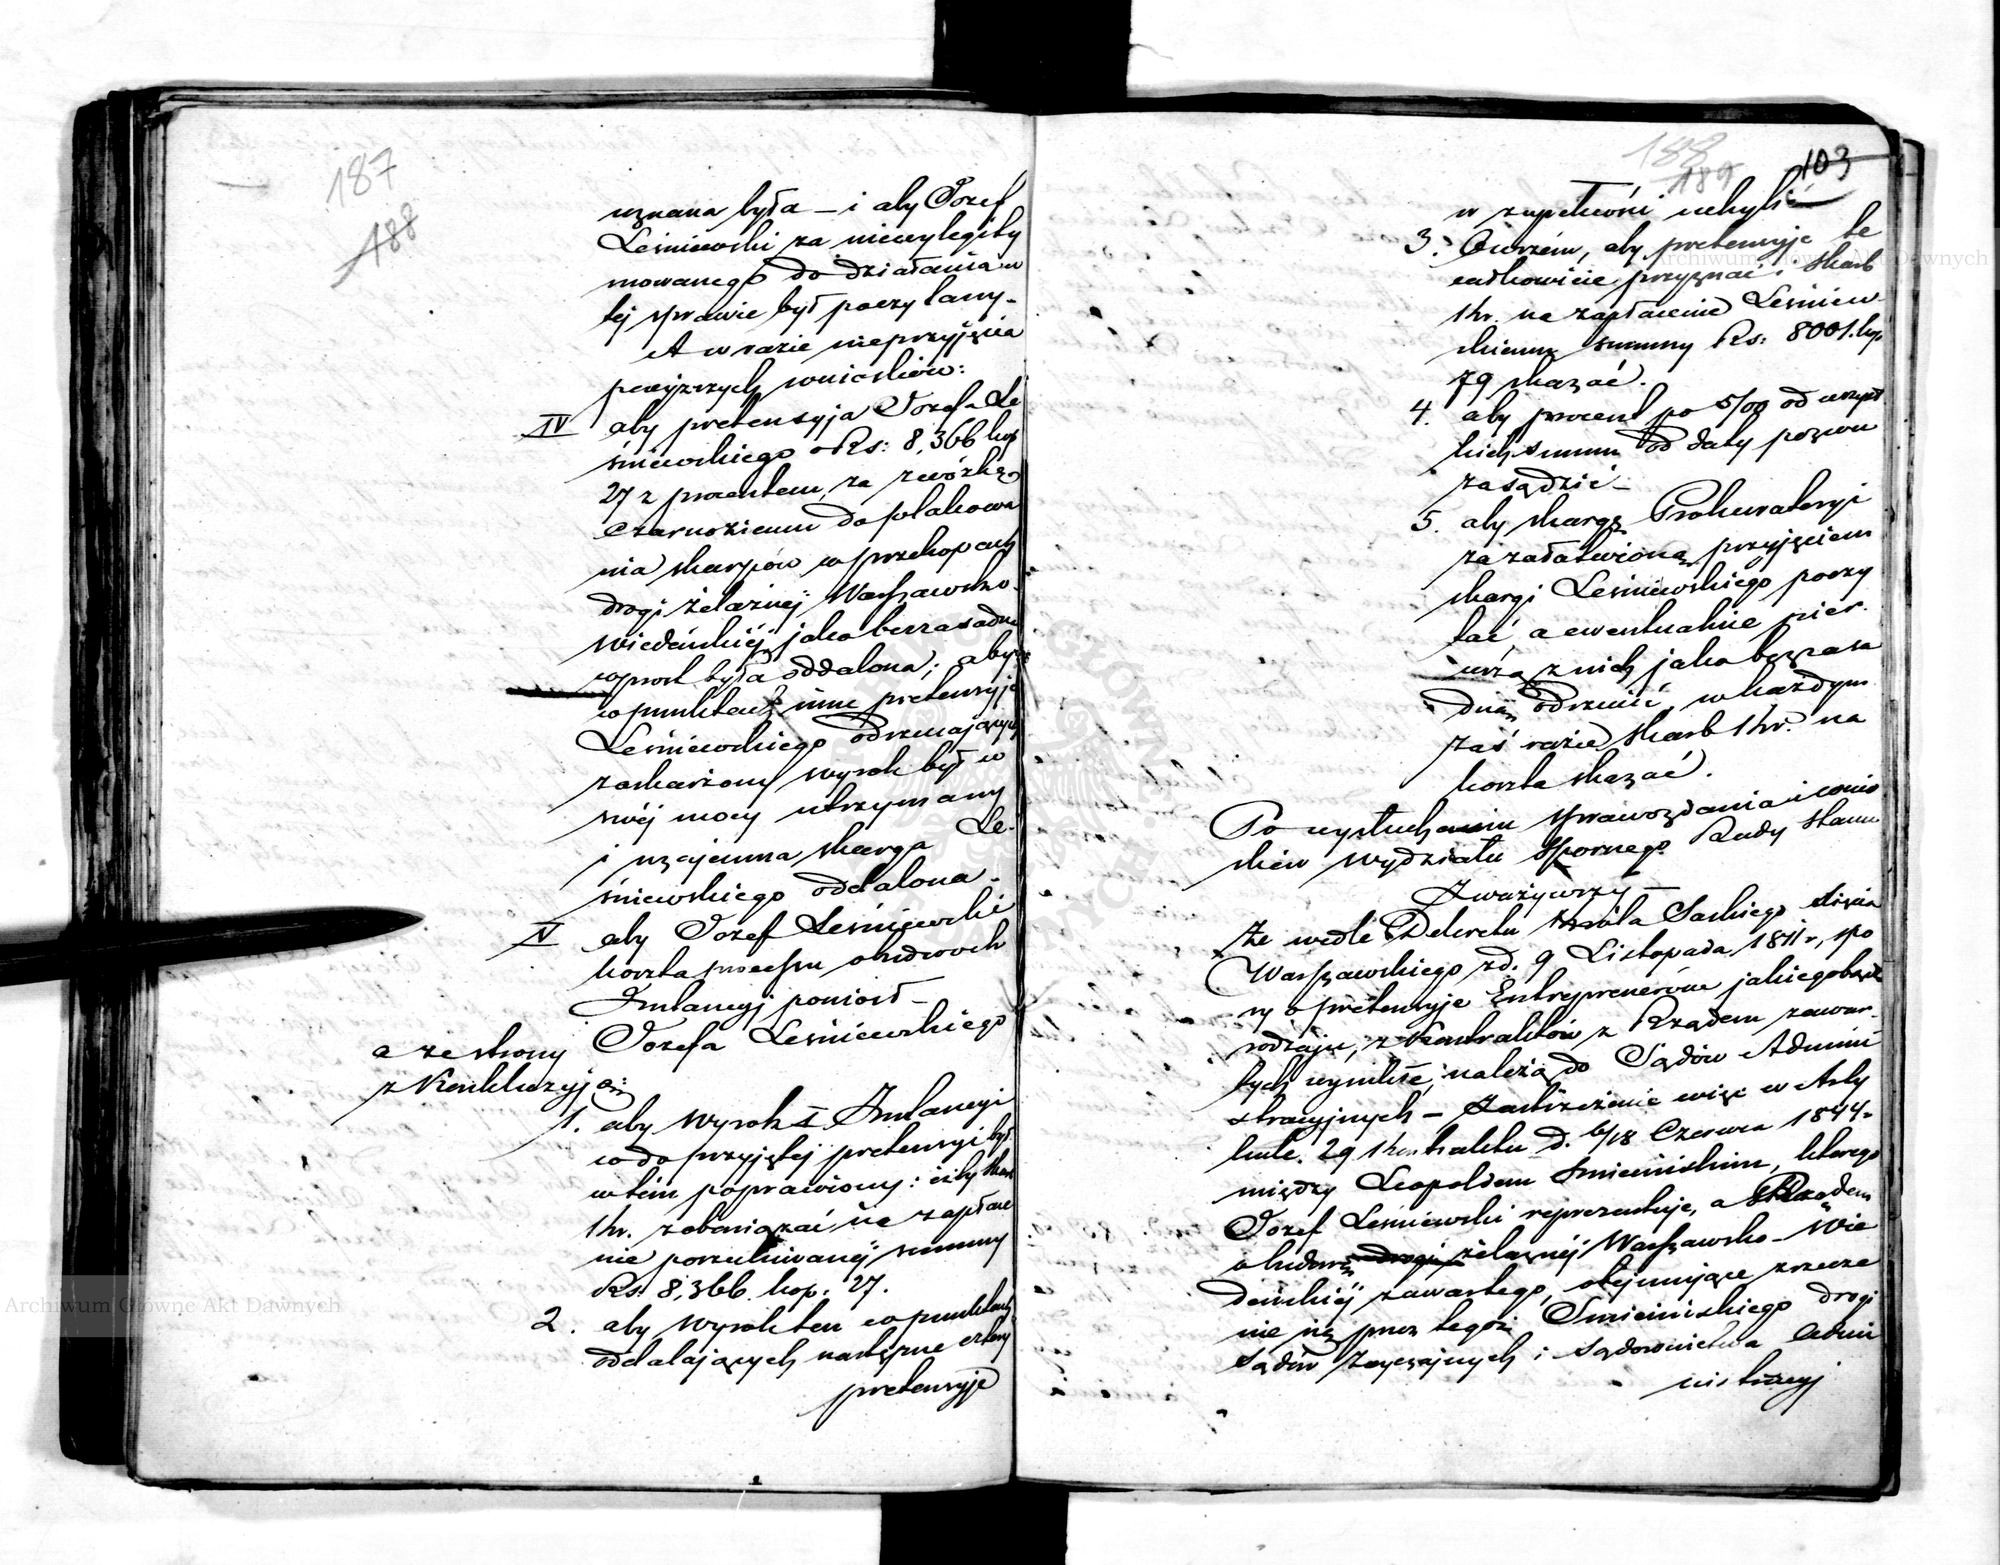 187
188
uznana była – i aby Józef
Leśniewski za niewylegity
mowanego do działania w
tej sprawie był poczytany –
A w razie nieprzyjęcia
powyższych wniosków:
IV aby pretensyja Józefa Le
śniewskiego o Rs: 8,366 kop
27 z procentem, za zwózkę
czarnoziemu do plakowa
nia skarpów w przekopach
drogi żelaznéj Warszawsko-
Wiedeńskiéj, jako bezzasadna
wprost była oddalona; aby
w punktach inne pretensyje
Leśniewskiego odrzucających
zaskarżony wyrok był w
swéj mocy utrzymany
i wzajemna skarga Le-
śniewskiego oddalona –
V aby Józef Leśniewski
koszta procesu obudwóch
Instancyj poniosł –
a ze strony Józefa Leśniewskiego
z Konkluzyją:
1. aby wyrok I Instancyi
co do przyjętéj pretensyi był
w tém poprawiony: iżby Skarb
Kr. zobowiązać na zapłace
nie poszukiwanéj summy
Rs. 8,366 kop. 27.
2. aby wyrok ten w punktach
oddalających następne cztery
pretensyje
188
189
103
w zupełności uchylić
3. Owszém, aby pretensyje te
całkowicie przyznać i Skarb
Kr. na zapłacenie Leśniew-
skiemu summy Rs: 8001. kop
79 skazać.
4. aby procent po 5/00 od wszyst
kich summ od daty pozwu
zasądzić –
5. aby skargę Prokuratoryi
za załatwioną przyjęciem
skargi Leśniewskiego poczy
tać, a ewentualnie pier-
wszą z nich jako bezzasa
dną odrzucić, w każdym
zaś razie Skarb Kr. na
koszta skazać.
Po wysłuchaniu sprawozdania i wnio
sków Wydziału Spornego Rady Stanu
Zważywszy –
Że wedle Dekretu Króla Saskiego Xięcia
Warszawskiego z d. 9 Listopada 1811 r, spo
ry o pretensyje Entreprenerów jakiegobądź
rodzaju, z Kontraktów z Rządem zawar-
tych wynikłe, należą do Sądów Admini
stracyjnych – Zastrzeżenie więc w Arty
kule 29 Kontraktu d. 6/18 Czerwca 1844 –
między Leopoldem Śmiecińskim, którego
Józef Leśniewski reprezentuje, a Rządem
o budowę drogi żelaznéj Warszawsko-Wie
deńskiéj zawartego, obejmujące zrzecze
nie się przez tegoż Śmiecińskiego drogi
sądów zwyczajnych i sądownictwa Admi
nistracyj
Archiwum Główne Akt Dawnych
Archiwum Główne Akt Dawnych